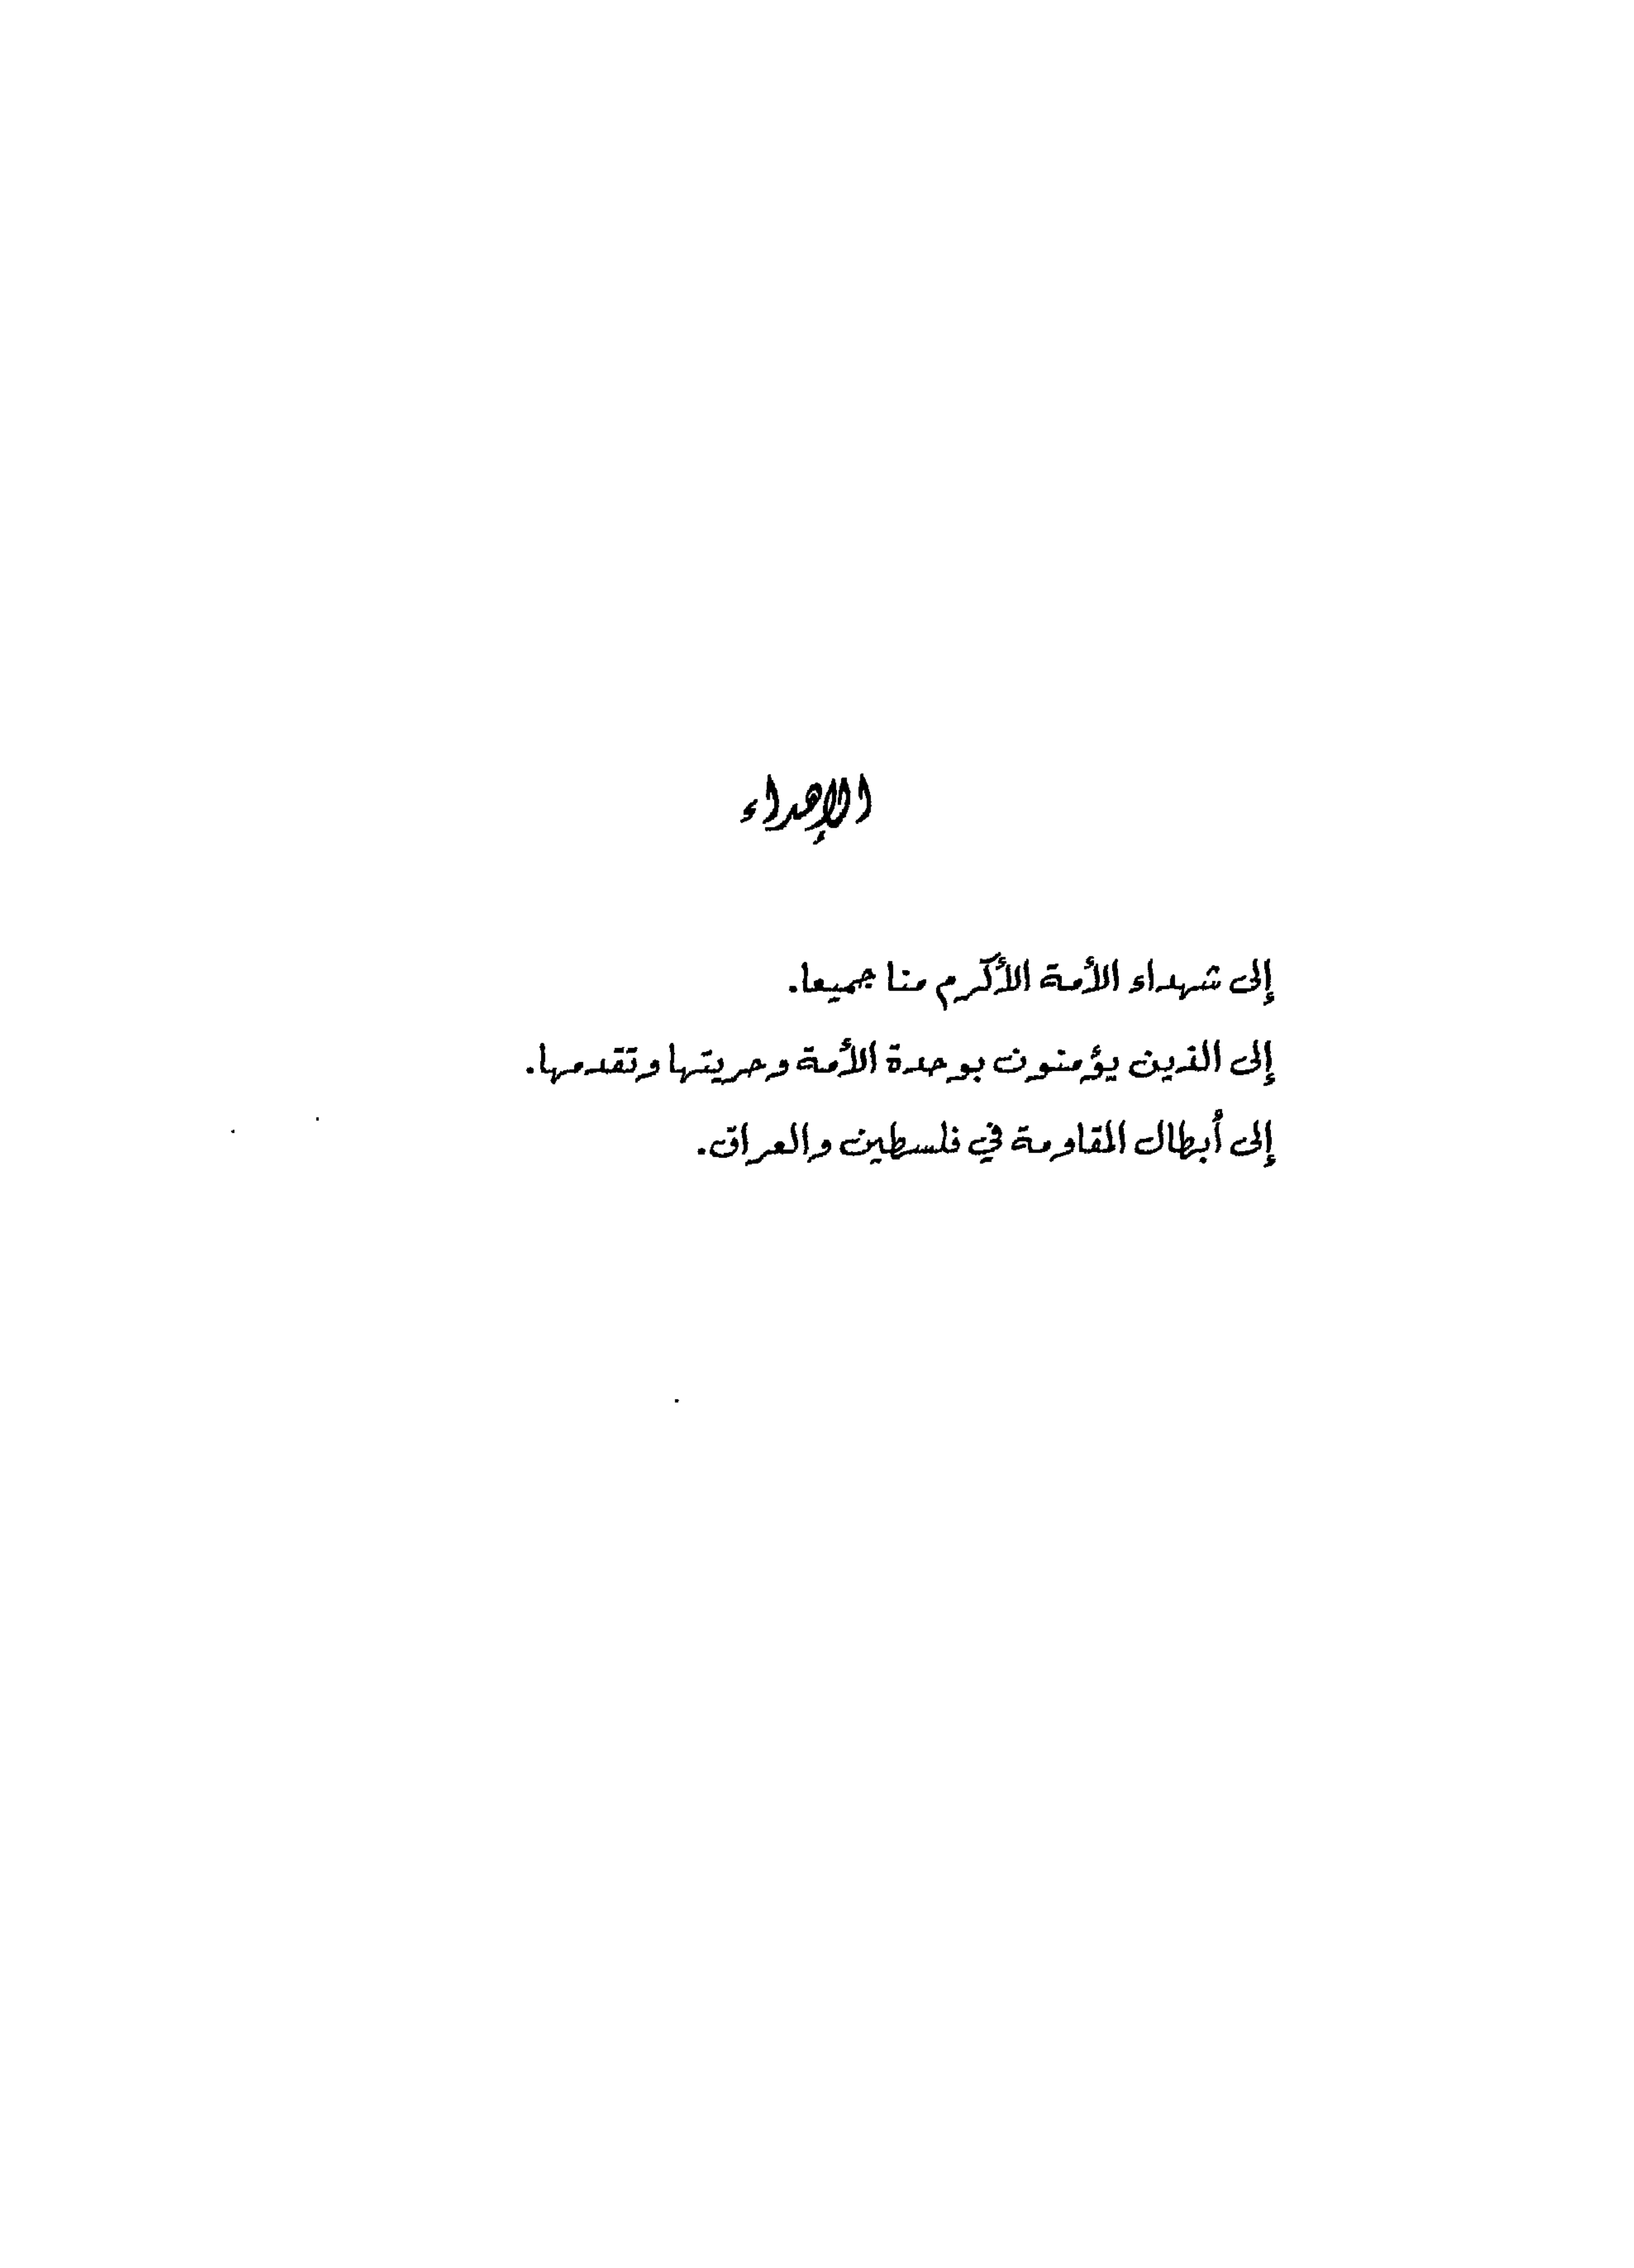 الإهداء
إلى شهداء الأمة الأكرم منا جميعا.
إلى الذين يؤمنون بوحدة الأمة وحريتها وتقدمها.
إلى أبطال المقاومة في فلسطين والعراق.